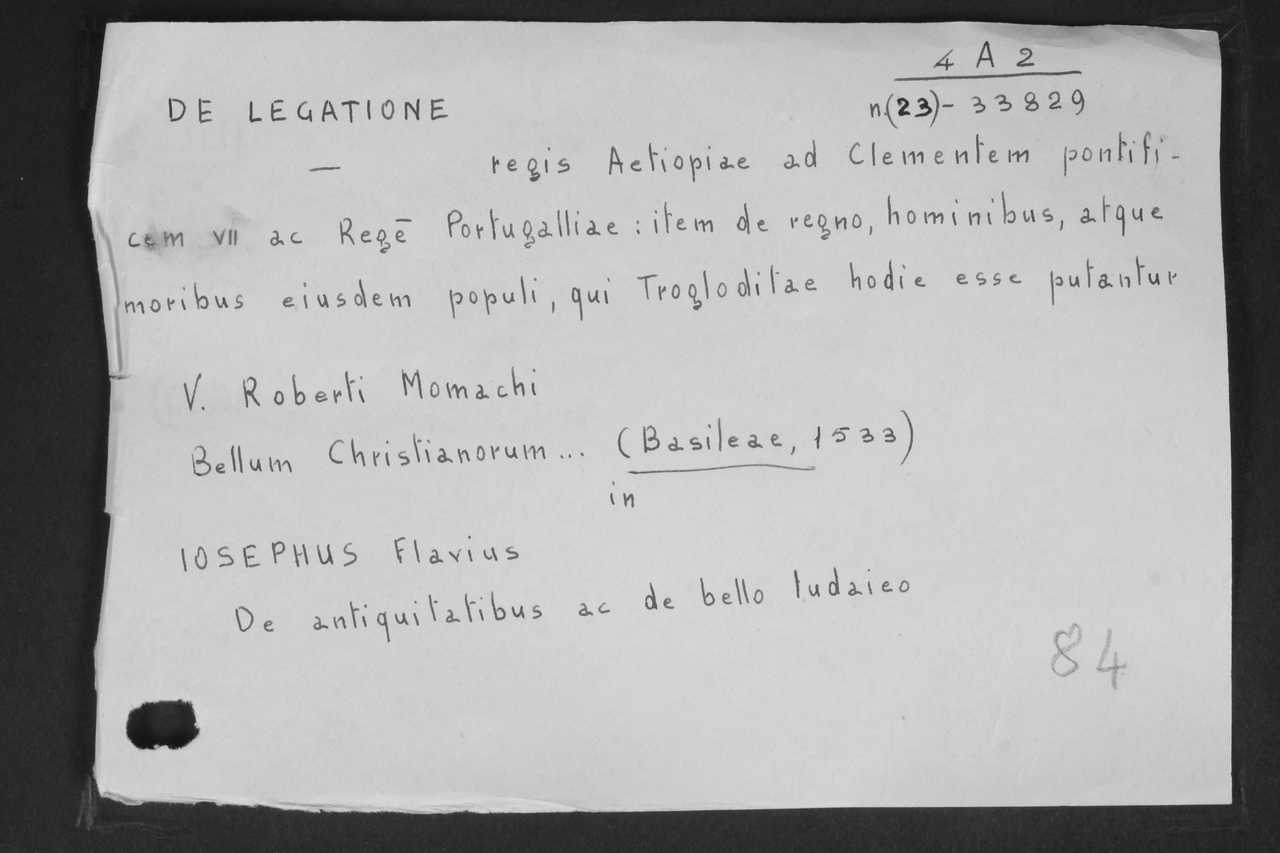 4 A 2
DE LEGATIONE
n.(23)- 33829
— regis Aetiopiae ad Clementem pontifi-
cem VII ac Regē Portugalliae : item de regno, hominibus, atque
moribus eiusdem populi, qui Trogloditae hodie esse putantur
V. Roberti Momachi
Bellum Christianorum... (Basileae, 1533)
in
IOSEPHUS Flavius
De antiquitatibus ac de bello Iudaico
84